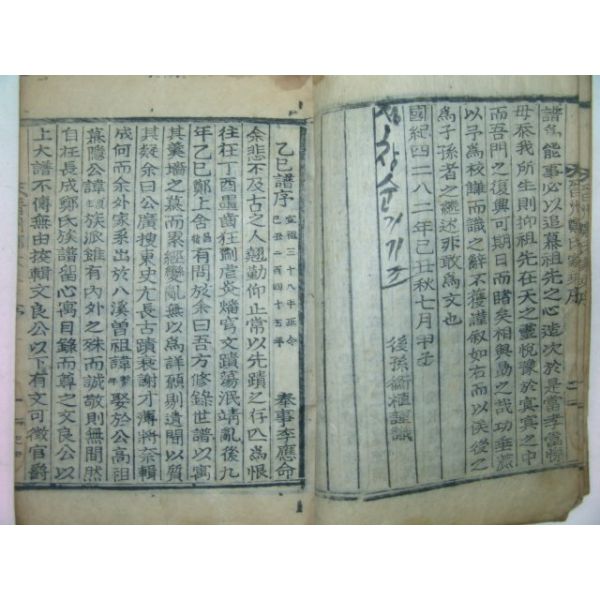 譜為能事必以追慕祖先之心造次於是當孝當悌
母忝我所生則抑祖先在天之靈悅豫於冥冥之中
而吾門之復興可期日而睹矣相與勗之哉功垂
以予為校讎而識之辭不獲謹敘如右而以俟後之
為子孫者之繼述非敢為文也
國紀四二八二年己丑秋七月甲子
後孫 植謹識
乙巳譜序
宣祖三十八年距今
己丑三百四十五年
奉事李應命
余悲不及古之人翹勤仰止常以先蹟之存亾為恨
往在丁酉蠻齒狂劘虐焱燔穹文蹟蕩泯靖亂後九
年乙巳鄭上舍 有問於余曰吾方修錄世譜以寓
其羹墻之慕而累經變亂無以為詳願剔遺聞以質
其疑余曰公廣搜東史亢長古蹟裒謝才薄將奈輯
成何而余外家系出於八溪曾祖諱 娶於公高沮
慕隱公諱 族派雖有內外之殊而誠敬則無間然
自在長成鄭氏族譜留心寓目錄而尊之文良公以
上大譜不傳無由按輯文良公以下有文可徵官爵